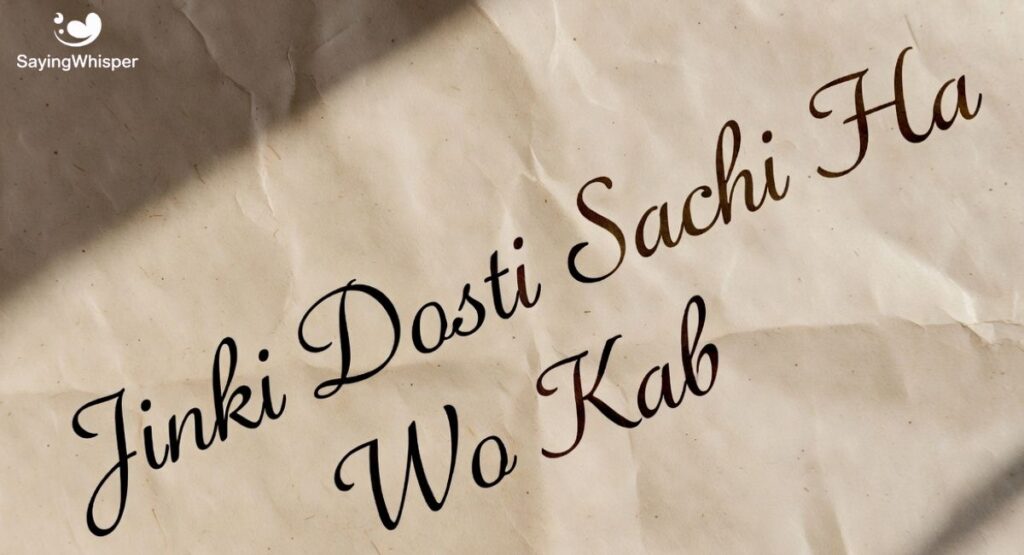 SayingWhisper
Jinki Dosti Sachi Ha
Wo Kab